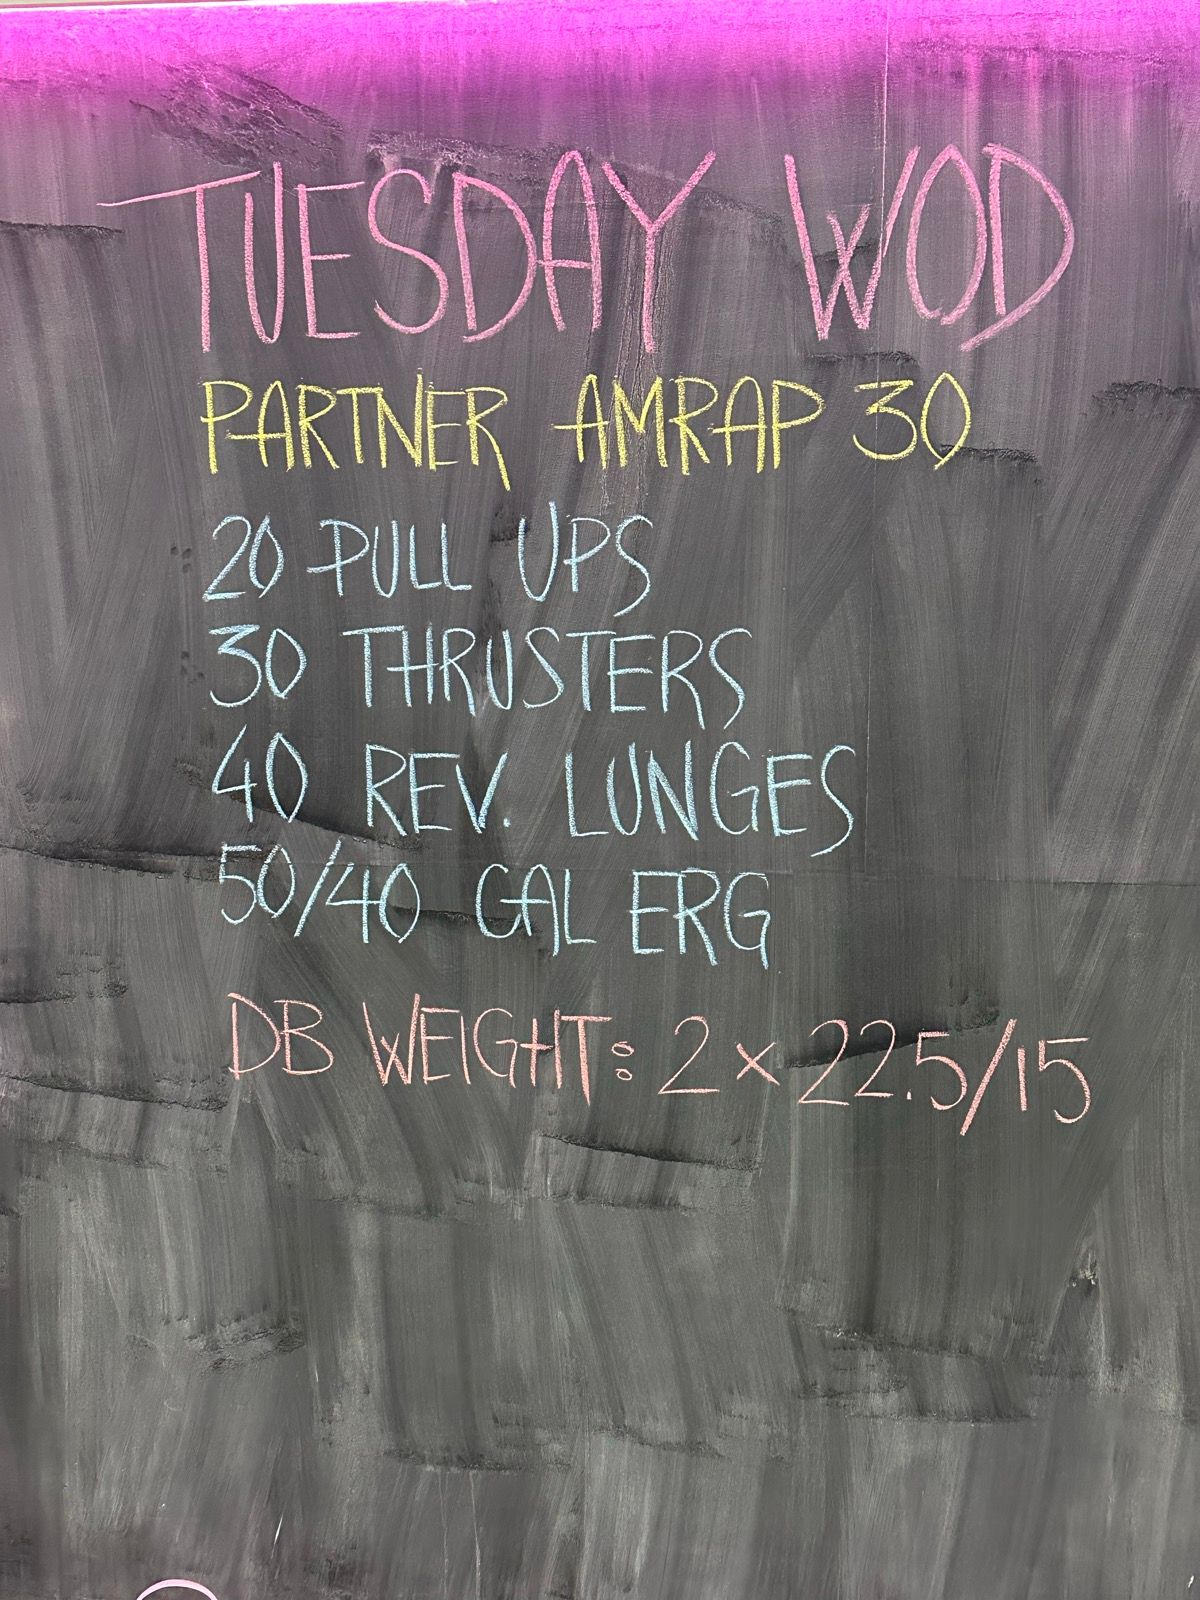 TUESDAY WOD
PARTNER AMRAP 30
20 PULL UPS
30 THRUSTERS
40 REV. LUNGES
50/40 CAL ERG
DB WEIGHT: 2 x 22.5/15